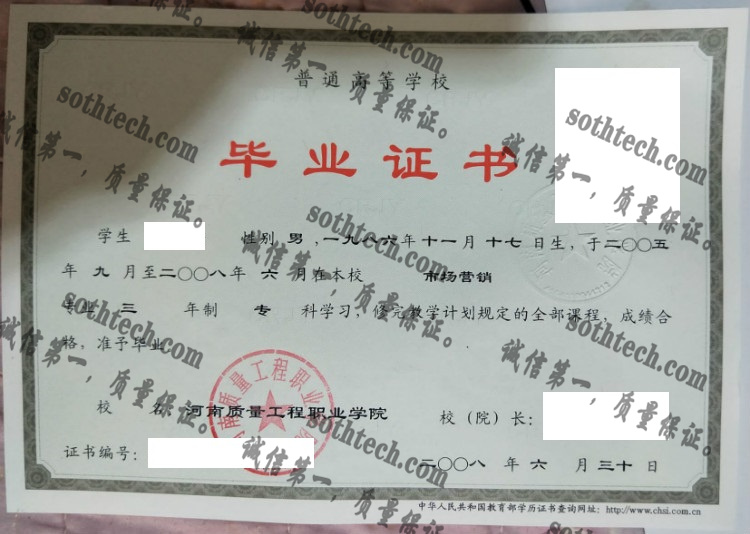 普通高等学校
毕业证书
学生 性别 男 ,一九八六年十一月十七日生，于二〇〇五
年 九 月至二〇〇八年 六 月在本校 市场营销
专业 三 年制 专 科学习，修完教学计划规定的全部课程，成绩合
格，准予毕业
校 名 河南质量工程职业学院 校（院）长：
河南质量工程职业学院
证书编号：
二〇〇八 年 六 月 三十 日
中华人民共和国教育部学历证书查询网址：http://www.chsi.com.cn
sothtech.com
诚信第一，质量保证。
sothtech.com
诚信第一，质量保证。
sothtech.com
诚信第一，质量保证。
sothtech.com
诚信第一，质量保证。
sothtech.com
诚信第一，质量保证。
sothtech.com
诚信第一，质量保证。
sothtech.com
诚信第一，质量保证。
sothtech.com
诚信第一，质量保证。